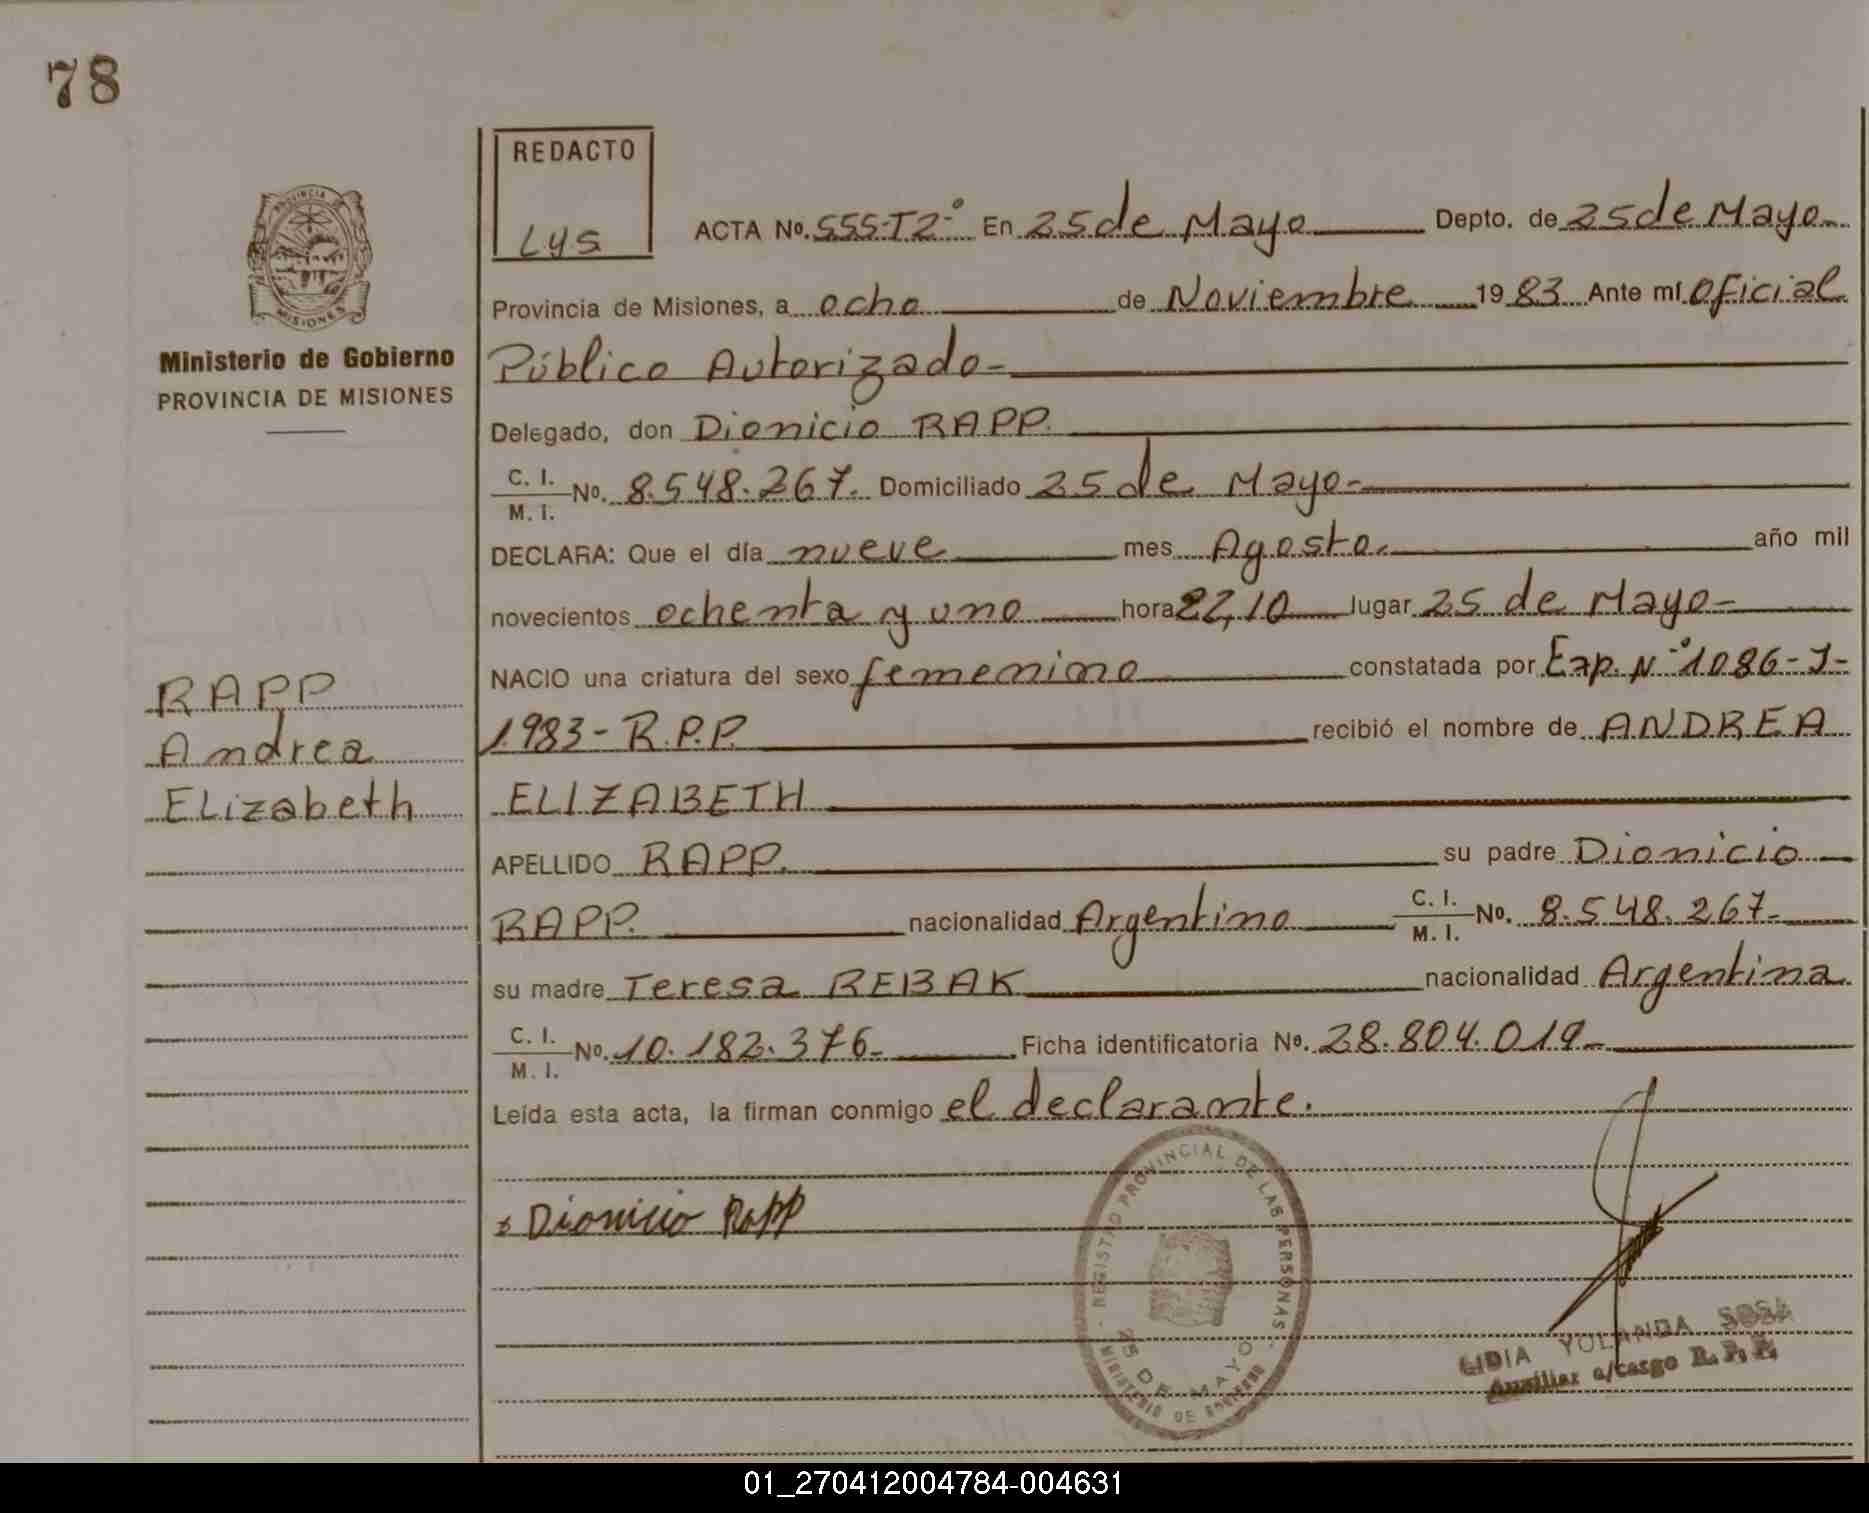 78
REDACTO
Lys
PROVINCIA DE
MISIONES
Ministerio de Gobierno
PROVINCIA DE MISIONES
RAPP
Andrea
ELizabeth
ACTA No. 555-T2-° En 25 de Mayo Depto. de 25 de Mayo-
Provincia de Misiones, a ocho de Noviembre 1983 Ante mí oficial
Público Autorizado-
Delegado, don Dionicio RAPP.
C. I. / M. I. No. 8.548.267. Domiciliado 25 de Mayo-
DECLARA: Que el día nueve mes Agosto. año mil
novecientos ochenta y uno hora 22,10 lugar 25 de Mayo-
NACIO una criatura del sexo femenino constatada por Exp. N-°1086-J-
1983- R.P.P. recibió el nombre de ANDREA
ELIZABETH
APELLIDO RAPP. su padre Dionicio
RAPP. nacionalidad Argentino C. I. / M. I. No. 8.548.267-
su madre Teresa REBAK nacionalidad Argentina
C. I. / M. I. No. 10.182.376- Ficha identificatoria No. 28.804.019-
Leída esta acta, la firman conmigo el declarante.
Dionicio Rapp
REGISTRO PROVINCIAL DE LAS PERSONAS
25 DE MAYO
MINISTERIO DE GOBIERNO
LIDIA YOLANDA SOSA
Auxiliar a/cargo R. P. P.
01_270412004784-004631